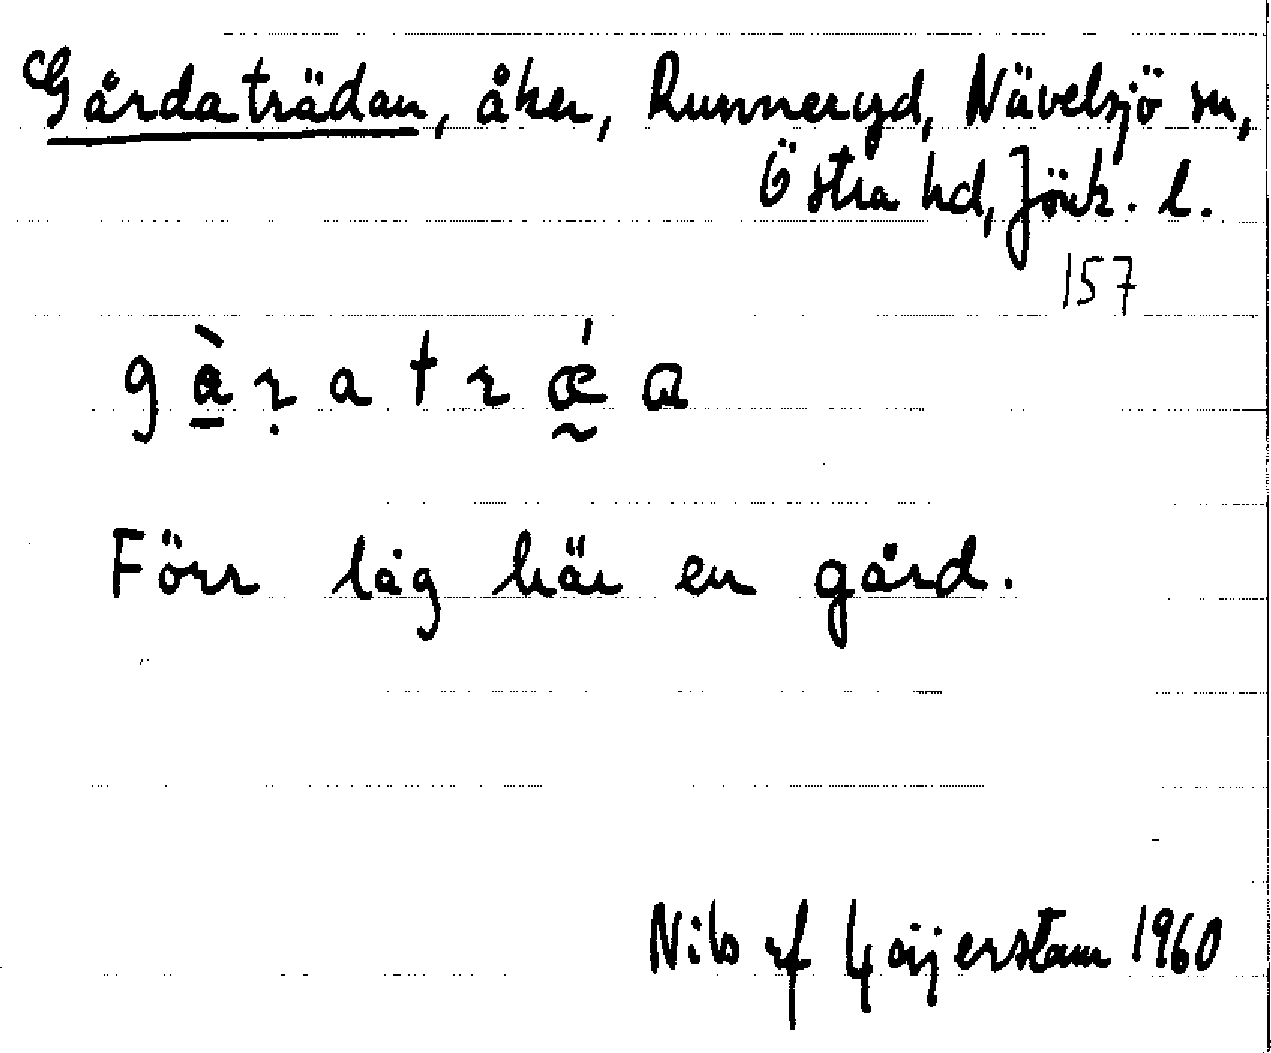 Gårdaträdan, åker, Runneryd, Nävelsjö sn,
Östra hd, Jönk. l.
157
gàṛatrǽɑ
Förr låg här en gård.
Nils af Geijerstam 1960